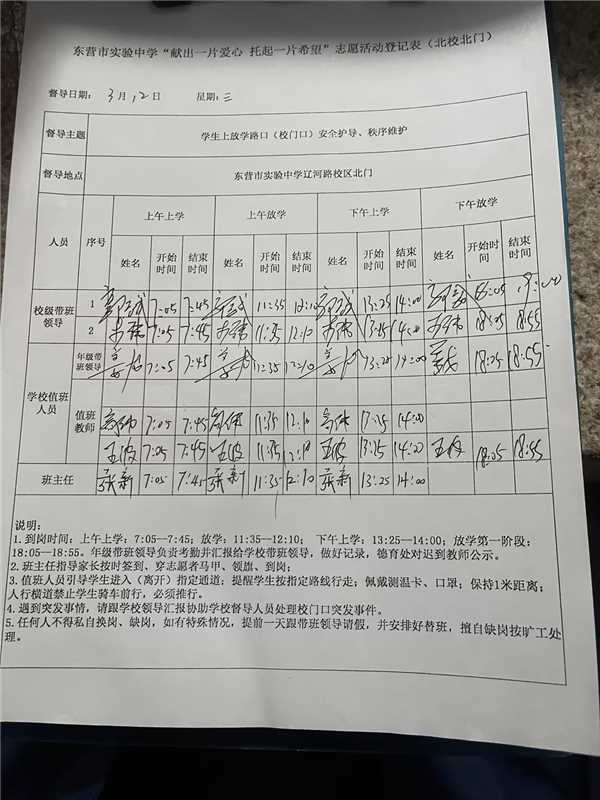 东营市实验中学“献出一片爱心 托起一片希望”志愿活动登记表（北校北门）
督导日期： 3 月 12 日 星期：三
督导主题 学生上放学路口（校门口）安全护导、秩序维护
督导地点 东营市实验中学辽河路校区北门
人员 序号 上午上学 上午放学 下午上学 下午放学
姓名 开始时间 结束时间 姓名 开始时间 结束时间 姓名 开始时间 结束时间 姓名 开始时间 结束时间
校级带班领导 1 7:05 7:45 11:35 12:10 13:25 14:00
2 7:05 7:45 11:35 12:10 13:25 14:00 18:05 18:55
学校值班人员 年级带班领导 7:05 7:45 11:35 12:10 13:25 14:00 18:05 18:55
值班教师 7:05 7:45 11:35 12:10 13:25 14:00
王波 7:05 7:45 王波 11:35 12:10 王波 13:25 14:00 王波 18:05 18:55
班主任 张新 7:05 7:45 张新 11:35 12:10 张新 13:25 14:00
说明：
1.到岗时间：上午上学：7:05—7:45；放学：11:35—12:10； 下午上学：13:25—14:00；放学第一阶段：
18:05—18:55。年级带班领导负责考勤并汇报给学校带班领导，做好记录，德育处对迟到教师公示。
2.班主任指导家长按时签到、穿志愿者马甲、领旗、到岗；
3.值班人员引导学生进入（离开）指定通道；提醒学生按指定路线行走；佩戴测温卡、口罩；保持1米距离；
人行横道禁止学生骑车前行，必须推行。
4.遇到突发事情，请跟学校领导汇报协助学校督导人员处理校门口突发事件。
5.任何人不得私自换岗、缺岗，如有特殊情况，提前一天跟带班领导请假，并安排好替班，擅自缺岗按旷工处
理。